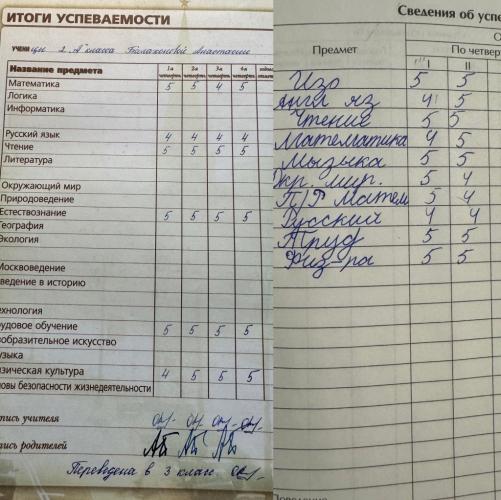 ИТОГИ УСПЕВАЕМОСТИ
учени цы 2 "А" класса Анастасии
Название предмета 1я четверть 2я четверть 3я четверть 4я четверть
Математика 5 5 4 5
Логика
Информатика
Русский язык 4 4 4 4
Чтение 5 5 5 5
Литература
Окружающий мир
Природоведение
Естествознание 5 5 5 5
География
Экология
Москводение
ведение в историю
хнология
рудовое обучение 5 5 5 5
зобразительное искусство
узыка
изическая культура 4 5 5 5
новы безопасности жизнедеятельности
пись учителя
ись родителей
Переведена в 3 класс
Сведения об успе
Предмет
По четверт
I II
Изо 5 5
Англ яз 4 5
Чтение 5 5
Математика 4 5
Музыка 5 5
Окр. мир. 5 4
П/Р Матем 5 4
Русский 4 4
Труд 5 5
Физ-ра 5 5
Поведение